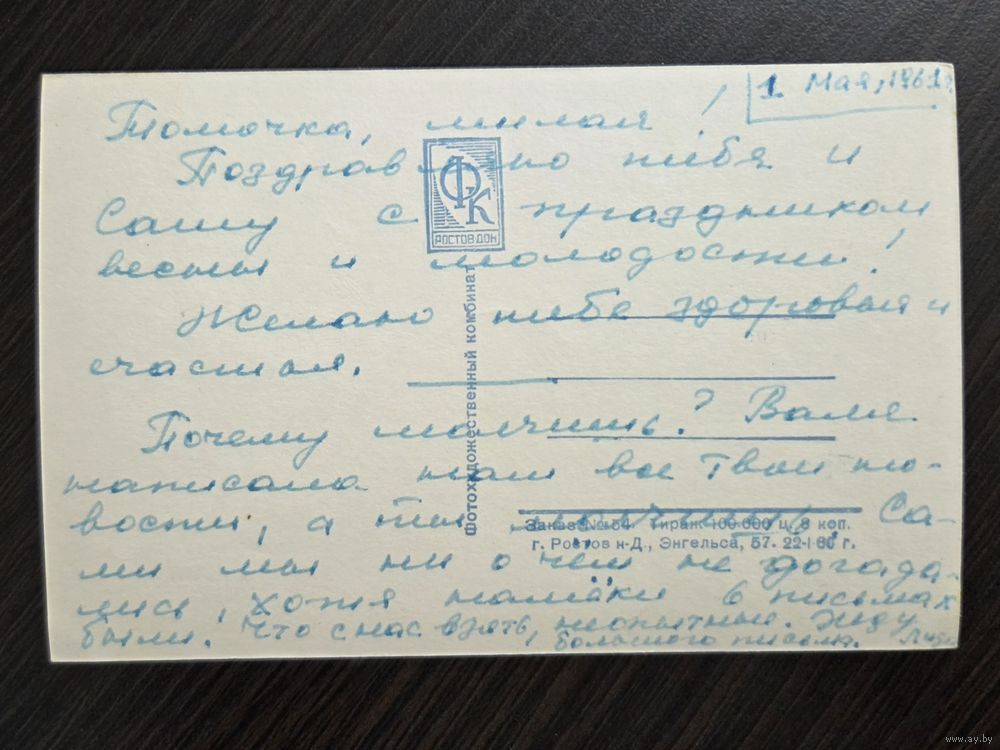 1 Мая, 1961г.
Томочка, милая!
Поздравляю тебя и
Сашу с праздником
весны и молодости!
Желаю тебе здоровья и
счастья.
Почему молчишь? Валя
написала нам все твои но-
вости, а ты молчишь. Са-
ми мы ни о чем не догада-
лись, хотя намёки в письмах
были. Что с нас взять, неопытные. Жду
большого письма. Лида
ФК
РОСТОВ ДОН
Фотохудожественный комбинат
Заказ № 54 Тираж 100 000 ц. 8 коп.
г. Ростов н-Д., Энгельса, 57. 22-I 60 г.
www.ay.by